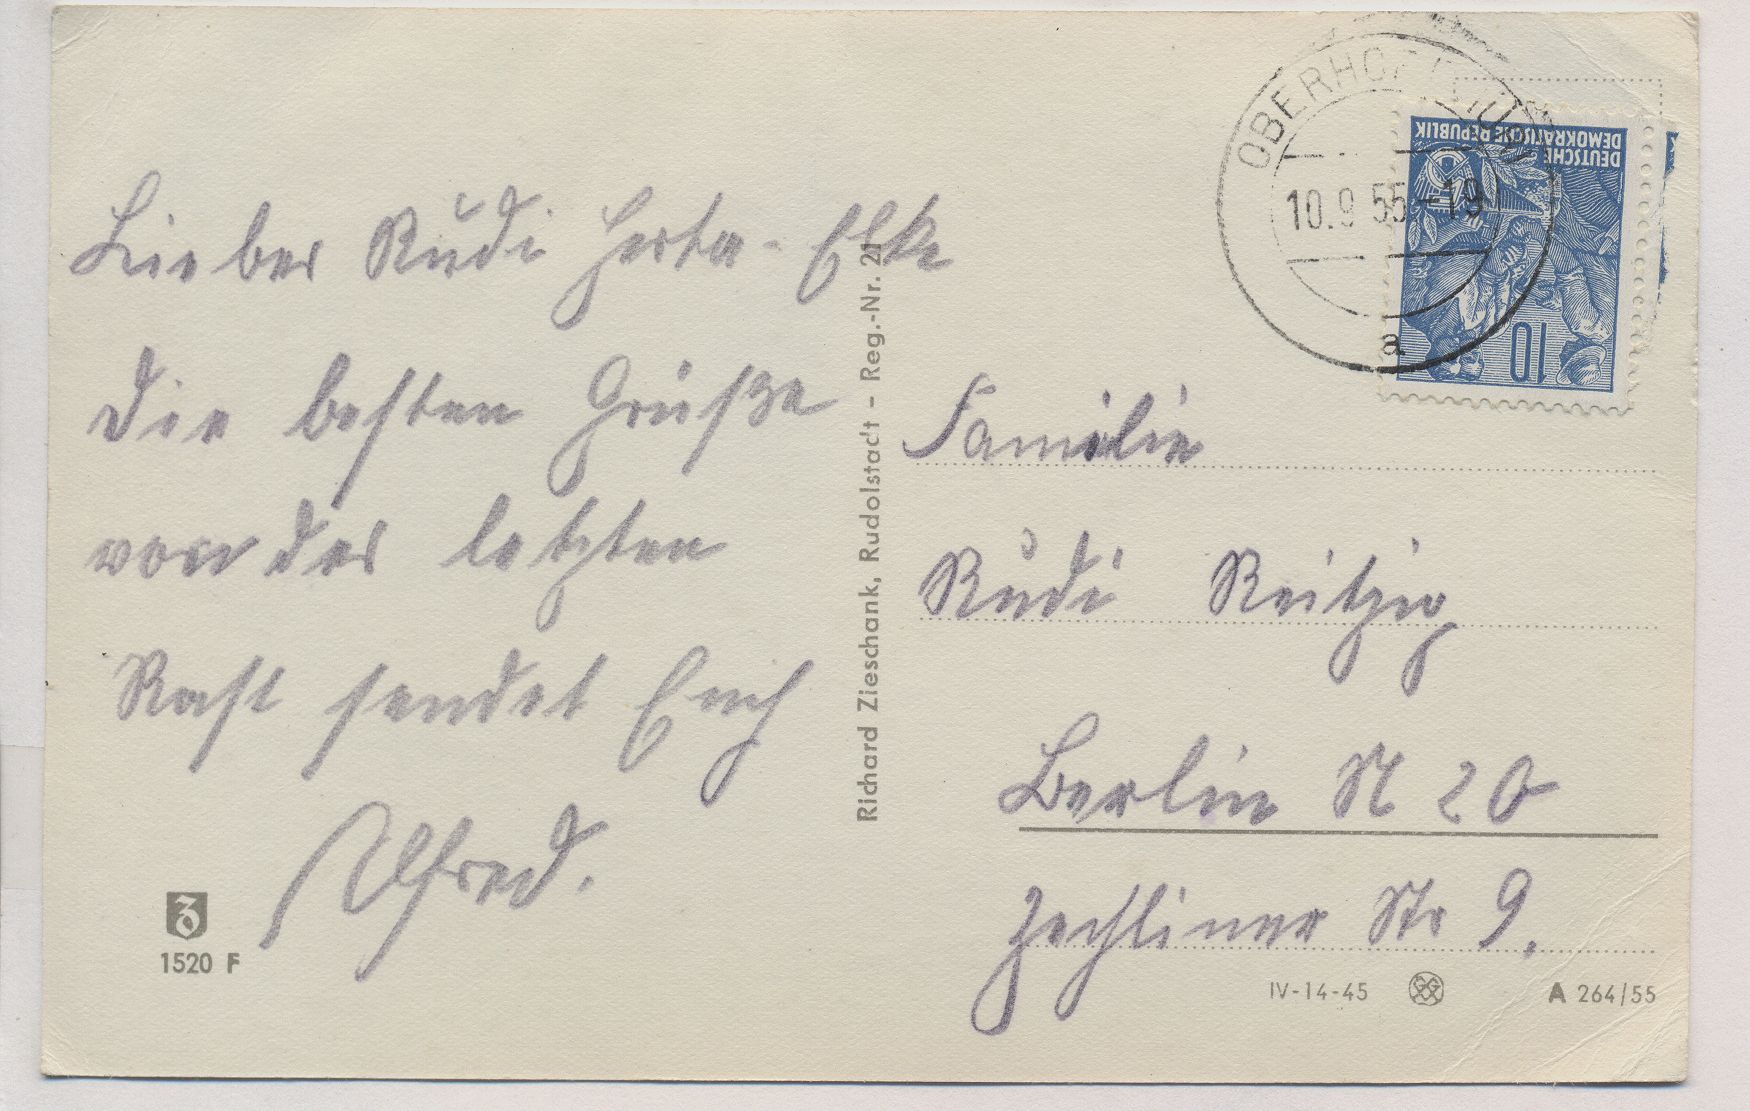 Lieber Rudi Herta - Elke
die besten Grüße
von der letzten
Rast sendet Euch
Alfred.
1520 F
Richard Zieschank, Rudolstadt - Reg.-Nr. 21
OBERHOF
10.9.55.-19
a
DEUTSCHE
DEMOKRATISCHE REPUBLIK
10
Familie
Rudi Reitzig
Berlin N 20
Zechliner Str 9.
IV-14-45
A 264/55